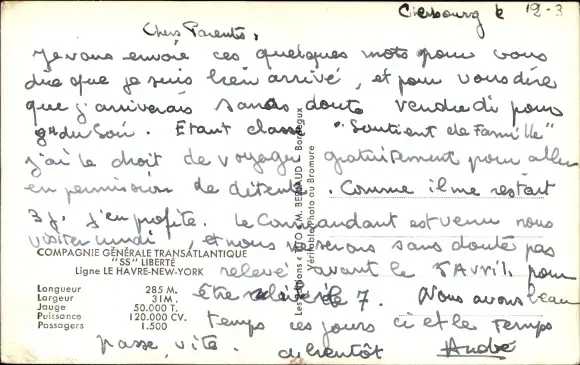 Cherbourg le 12-3
Chers Parents,
Je vous envoie ces quelques mots pour vous
dire que je suis bien arrivé, et pour vous dire
que j'arriverais sans doute vendredi pour
9h du Soir. Etant classé "Soutient de Famille"
j'ai le droit de voyager gratuitement pour aller
en permission de détente. Comme il me restait
3 j. j'en profite. Le Commandant est venu nous
visiter lundi, et nous ne serons sans doute pas
relevé avant le 5 Avril, pour
être le 7. Nous avons beau
temps ces jours ci et le temps
passe vite. a bientôt André
COMPAGNIE GÉNÉRALE TRANSATLANTIQUE
"SS" LIBERTÉ
Ligne LE HAVRE-NEW-YORK
Longueur 285 M.
Largeur 31 M.
Jauge 50.000 T.
Puissance 120.000 CV.
Passagers 1.500
Les Éditions « TITO » M. BERJAUD - Bordeaux
Véritable Photo au Bromure